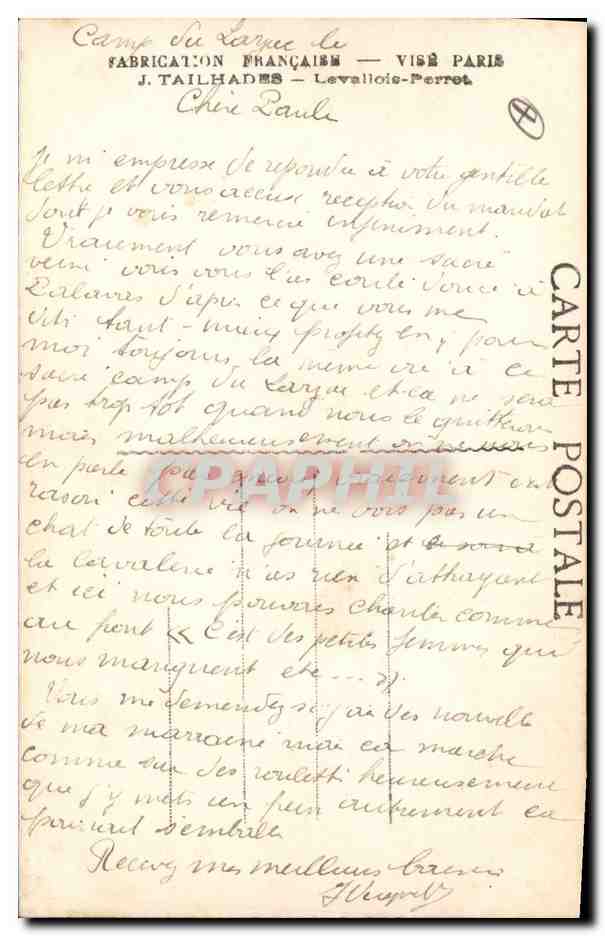 Camp du Larzac le
FABRICATION FRANÇAISE — VISÉ PARIS
J. TAILHADES — Levallois-Perret
Chère Paule
Je m'empresse de repondre à votre gentille
lettre et vous accuse reception du mandat
dont je vous remercie infiniment.
Vraiment vous avez une sacré
veine vous vous l'as coulé douce à
Palavas d'après ce que vous me
dite tant-mieux profitez en y pour
moi toujours la même vie à ce
sacré camp du Larzac et ca ne sera
pas trop tot quand nous le quitteron
mais malheureusement on ne nous
en parle pas
raison cette vie on ne vois pas un
chat de toute la journée et
la cavalerie n'as rien d'attrayant
et ici nous pouvons chanter comme
au front « C'est des petites femmes qui
nous manquent etc... »
Vous me demendez si j'ai des nouvelle
de ma marraine mai ca marche
comme sur des rouletti heureusement
que j'y mets un frein autrement ca
pourrait s'emballe
Recevez mes meilleurs baisers
CARTE POSTALE
CPAPHIL